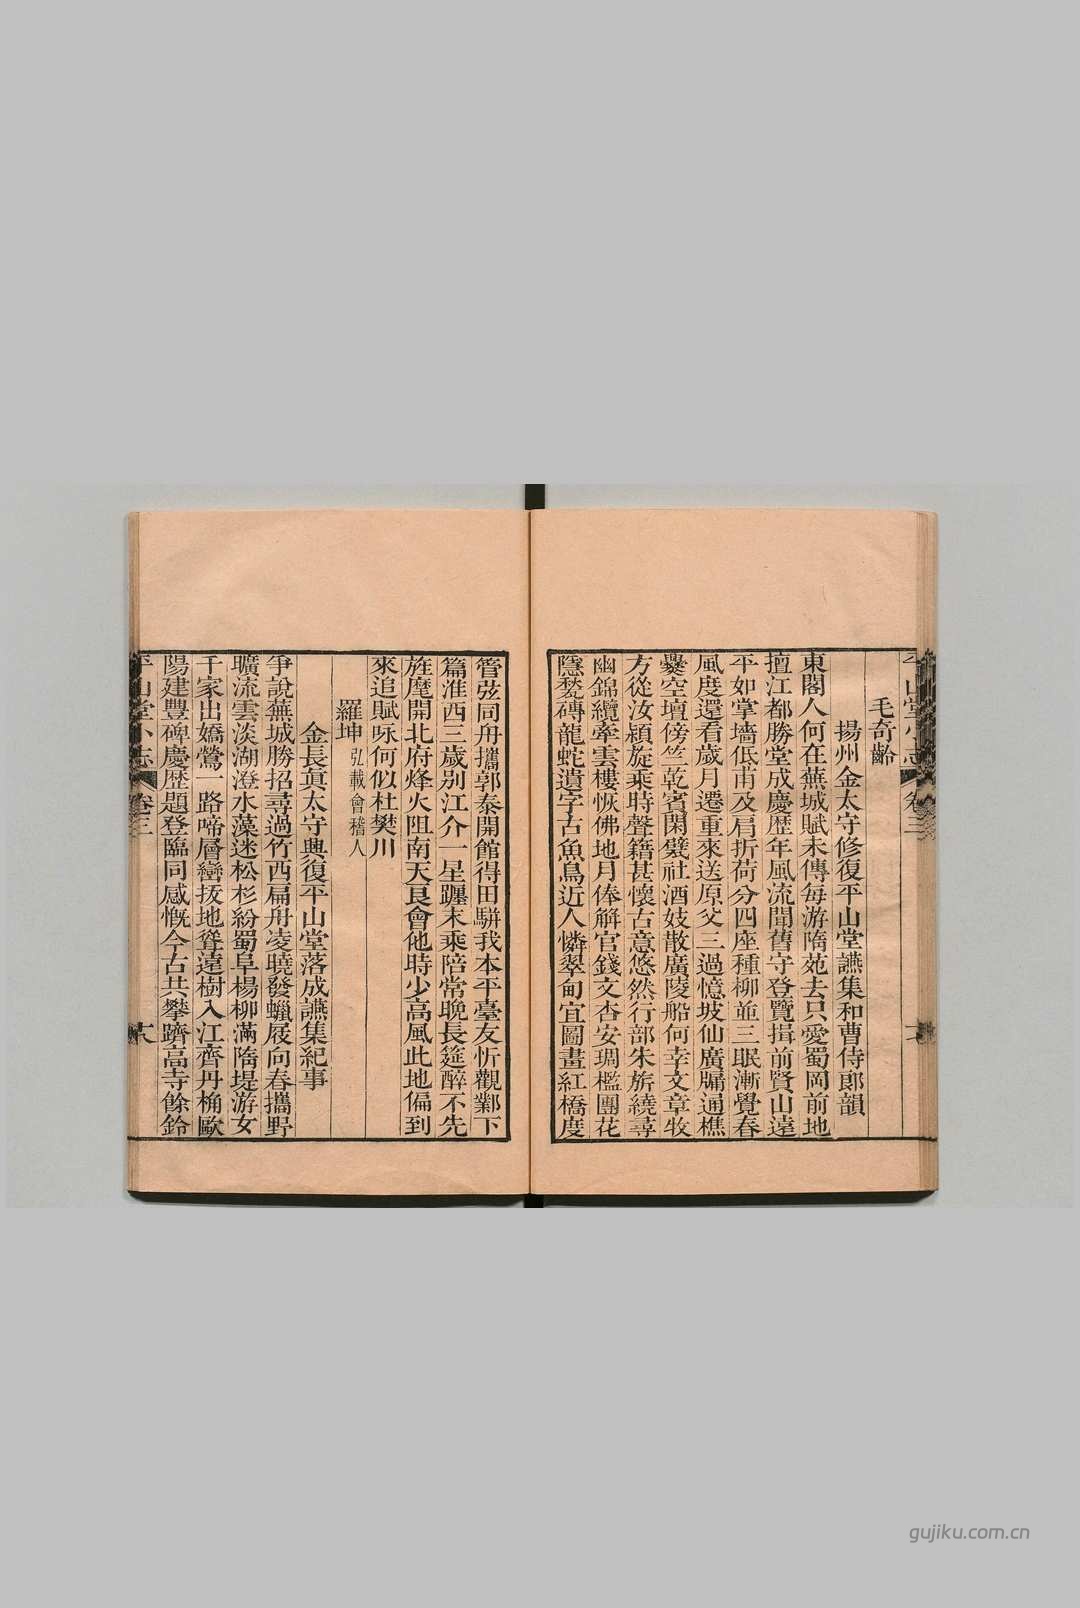 毛奇齡
揚州金太守修復平山堂讌集和曹侍郞韻
東閣人何在蕪城賦未傳每游隋苑去只愛蜀岡前地
擅江都勝堂成慶歷年風流聞舊守登覽揖前賢山遠
平如掌墻低甫及肩折荷分四座種柳並三眠漸覺春
風度還看歲月遷重來送原父三過憶坡仙廣牖通樵
爨空壇傍竺乾賓閑甓社酒妓散廣陵船何幸文章牧
方從汝潁旋乘時聲籍甚懷古意悠然行部朱旂繞尋
幽錦纜牽雲樓恢佛地月俸解官錢文杏安琱檻團花
隱甃磚龍蛇遺字古魚鳥近人憐翠甸宜圖畫紅橋度
管弦同舟攜郭泰開館得田駢我本平臺友忻觀鄴下
篇淮西三歲别江介一星躔末乘陪常晚長筵醉不先
旌麾開北府烽火阻南天良會他時少高風此地偏到
來追賦咏何似杜樊川
羅坤 弘載會稽人
金長眞太守興復平山堂落成讌集紀事
爭說蕪城勝招尋過竹西扁舟凌曉發蠟屐向春攜野
曠流雲淡湖澄水藻迷松杉紛蜀阜楊柳滿隋堤游女
千家出嬌鶯一路啼層巒抜地聳遠樹入江齊丹桷歐
陽建豐碑慶歴題登臨同感慨今古共攀躋高寺餘鈴
平山堂小志 卷三
gujiku.com.cn